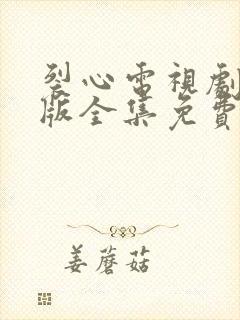 裂心電視劇
版全集免費
姜蘑菇